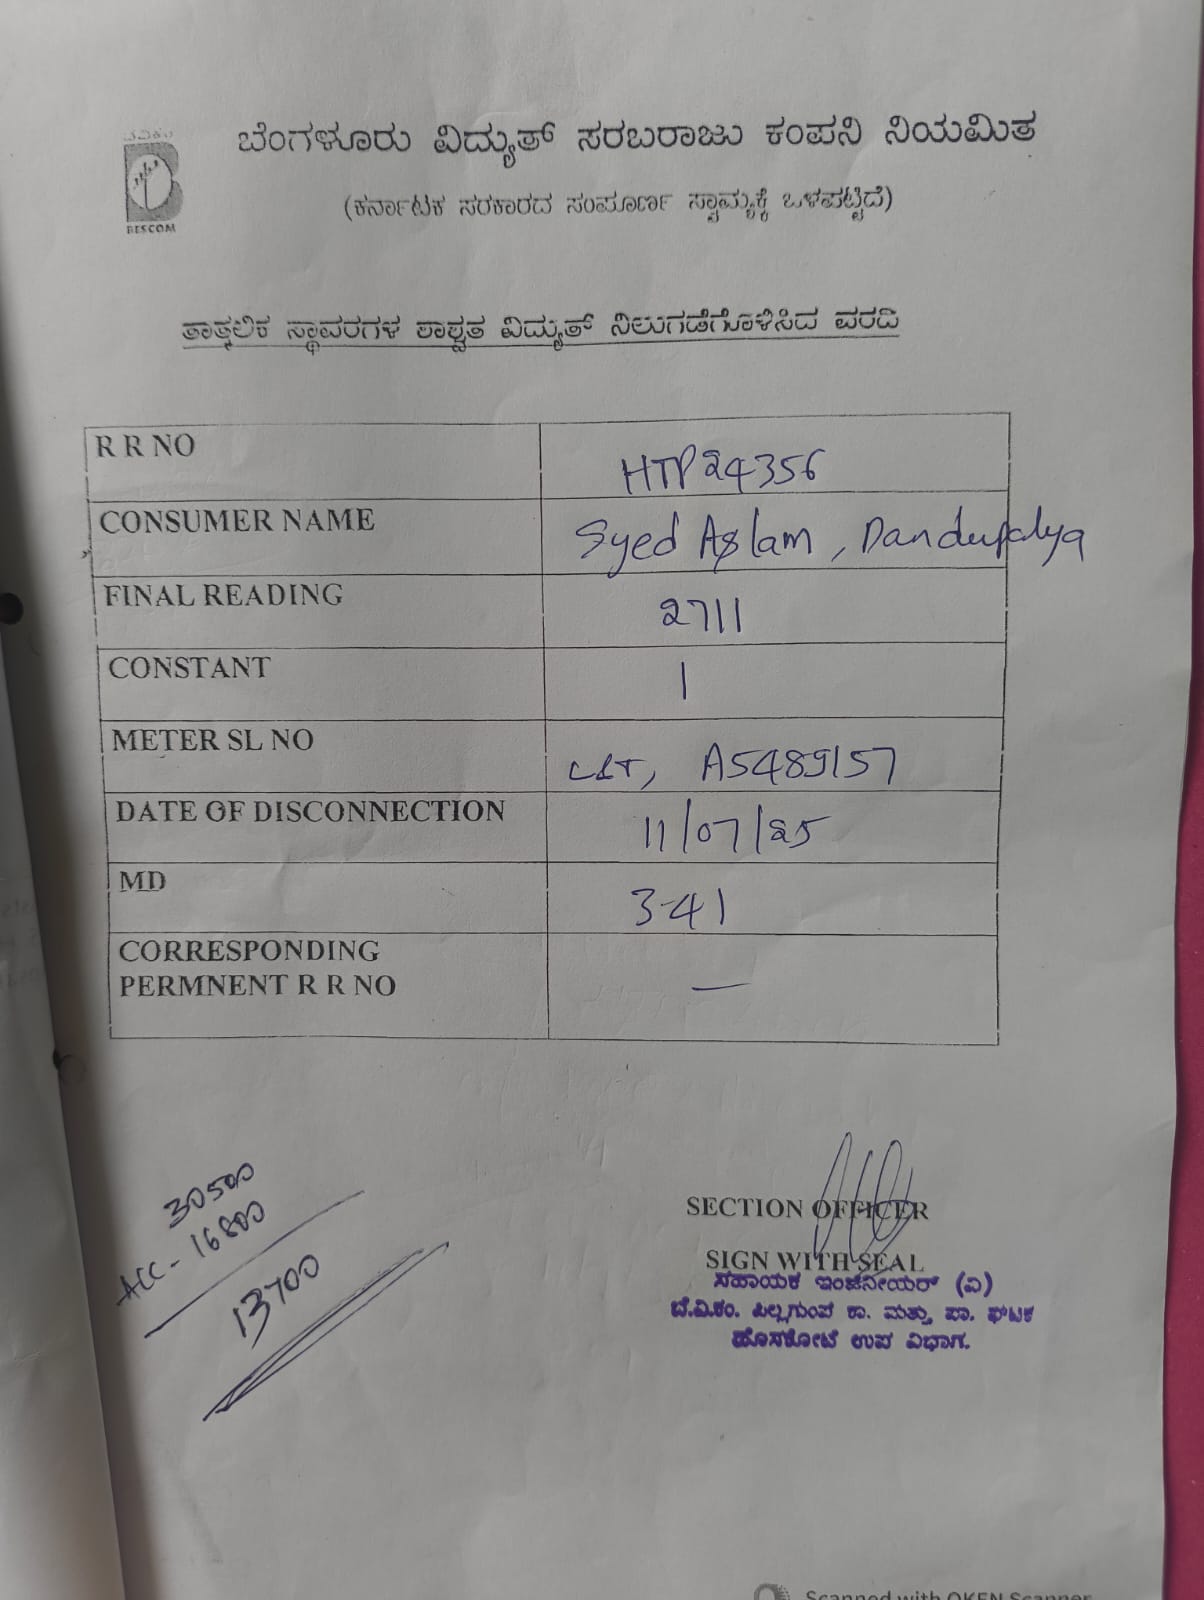 ಬೆವಿಕಂ
BESCOM
ಬೆಂಗಳೂರು ವಿದ್ಯುತ್ ಸರಬರಾಜು ಕಂಪನಿ ನಿಯಮಿತ
(ಕರ್ನಾಟಕ ಸರಕಾರದ ಸಂಪೂರ್ಣ ಸ್ವಾಮ್ಯಕ್ಕೆ ಒಳಪಟ್ಟಿದೆ)
ತಾತ್ಕಲಿಕ ಸ್ಥಾವರಗಳ ಶಾಶ್ವತ ವಿದ್ಯುತ್ ನಿಲುಗಡೆಗೊಳಿಸಿದ ವರದಿ
R R NO HTP24356
CONSUMER NAME Syed Aslam, Dandupalya
FINAL READING 2711
CONSTANT 1
METER SL NO L&T, A5489157
DATE OF DISCONNECTION 11/07/25
MD 3-41
CORRESPONDING
PERMNENT R R NO —
30500
ACC - 16800
13700
SECTION OFFICER
SIGN WITH SEAL
ಸಹಾಯಕ ಇಂಜಿನೀಯರ್ (ವಿ)
ಬೆ.ವಿ.ಕಂ. ಪಿಲ್ಲಗುಂಪ ಕಾ. ಮತ್ತು ಪಾ. ಘಟಕ
ಹೊಸಕೋಟೆ ಉಪ ವಿಭಾಗ.
Scanned with OKEN Scanner